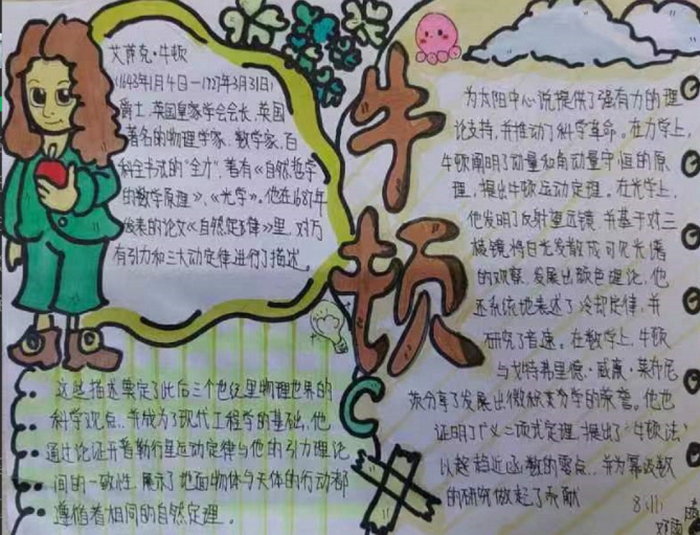 艾萨克·牛顿
(1643年1月4日—1727年3月31日)
爵士,英国皇家学会会长,英国
著名的物理学家、数学家,百
科全书式的“全才”,著有《自然哲学
的数学原理》、《光学》。他在1687年
发表的论文《自然定律》里,对万
有引力和三大动定律进行了描述。
牛
顿
这些描述奠定了此后三个世纪里物理世界的
科学观点,并成为了现代工程学的基础,他
通过论证开普勒行星运动定律与他的引力理论
间的一致性,展示了地面物体与天体的行动都
遵循着相同的自然定理。
为太阳中心说提供了强有力的理
论支持,并推动了科学革命。在力学上
牛顿阐明了动量和角动量守恒的原
理,提出牛顿运动定理。在光学上,
他发明了反射望远镜,并基于对三
棱镜将白光发散成可见光谱
的观察,发展出颜色理论。他
还系统地表述了冷却定律,并
研究了音速。在数学上,牛顿
与戈特弗里德·威廉·莱布尼
茨分享了发展出微积分学的荣誉。他也
证明了广义二项式定理,提出了“牛顿法”
以趋近函数的零点,并为幂级数
的研究做起了贡献
C
8(11)